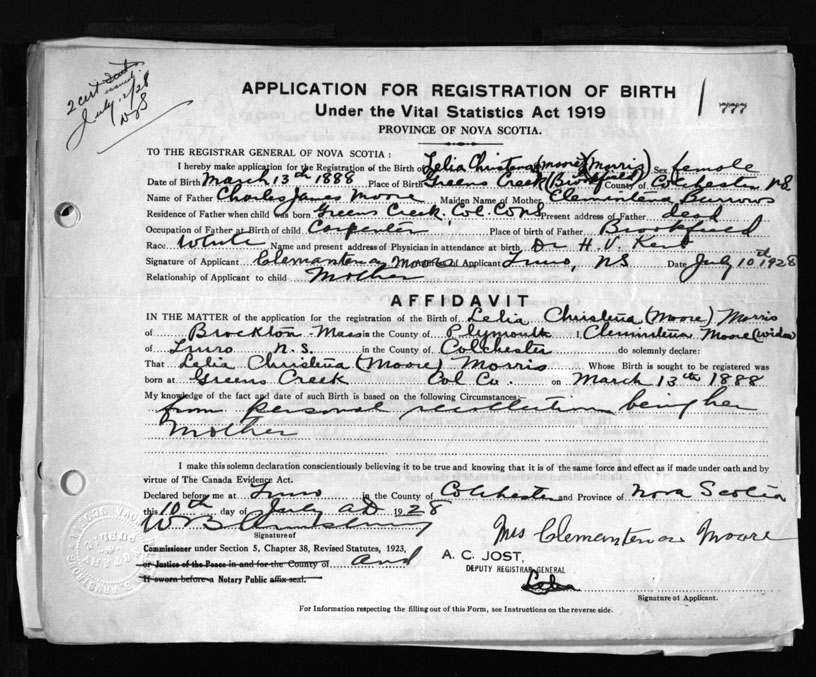 2 cert
issued
July 12/28
APPLICATION FOR REGISTRATION OF BIRTH
Under the Vital Statistics Act 1919
PROVINCE OF NOVA SCOTIA.
TO THE REGISTRAR GENERAL OF NOVA SCOTIA:
I hereby make application for the Registration of the Birth of Lelia Christena (Moore) (Morris) Sex female
Date of Birth March 13th 1888 Place of Birth Greens Creek (Brookfield) County of Colchester NS
Name of Father Charles James Moore Maiden Name of Mother Clementena Burrows
Residence of Father when child was born Greens Creek. Col. Co NS Present address of Father dead
Occupation of Father at Birth of child Carpenter Place of birth of Father Brookfield
Race White Name and present address of Physician in attendance at birth Dr H. V. Kent
Signature of Applicant Clemantena Moore of Applicant Truro, NS Date July 10th 1928
Relationship of Applicant to child Mother
AFFIDAVIT
IN THE MATTER of the application for the registration of the Birth of Lelia Christena (Moore) Morris
of Brockton Mass in the County of Plymouth I, Clemintena Moore (widow)
of Truro N.S. in the County of Colchester do solemnly declare:
That Lelia Christena (Moore) Morris Whose Birth is sought to be registered was
born at Greens Creek Col Co. on March 13th 1888
My knowledge of the fact and date of such Birth is based on the following Circumstances:
from personal recollection being her
Mother
I make this solemn declaration conscientiously believing it to be true and knowing that it is of the same force and effect as if made under oath and by
virtue of The Canada Evidence Act.
Declared before me at Truro in the County of Colchester and Province of Nova Scotia
this 10th day of July AD 1928
W B Armstrong
Signature of
Mrs Clemantena Moore
Commissioner under Section 5, Chapter 38, Revised Statutes, 1923,
or Justice of the Peace in and for the County of and
If sworn before a Notary Public affix seal.
A. C. JOST,
DEPUTY REGISTRAR GENERAL
Signature of Applicant.
For Information respecting the filling out of this Form, see Instructions on the reverse side.